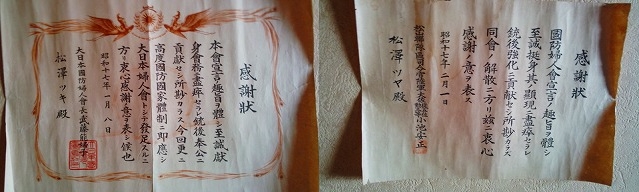 感謝狀
本會宣言ノ趣旨ヲ體シ至誠獻
身會務ニ盡瘁セラレ銃後奉公ニ
貢献セシ所尠カラス今回更ニ
高度國防國家體制ニ即應シ
大日本婦人會トシテ發足スルニ
方リ衷心感謝ノ意ヲ表シ候也
昭和十七年一月八日
大日本國防婦人會長武藤能婦子
松澤ツキ殿
感謝狀
國防婦人會宣言ノ趣旨ヲ體シ
至誠挺身其ノ顯現ニ盡瘁セラレ
銃後強化ニ貢献セシ所尠カラス
同會ノ解散ニ方リ茲ニ衷心
感謝ノ意ヲ表ス
昭和十七年二月一日
小池安正
松澤ツマ殿